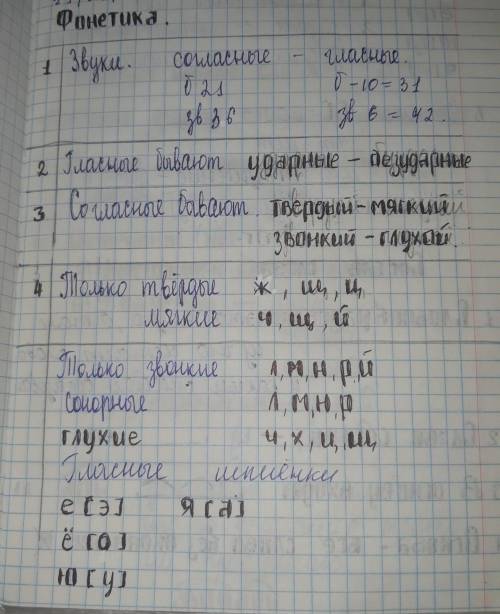 Фонетика.
1 Звуки. согласные - гласные.
б 21 б - 10 = 31
зв 36 зв 6 = 42.
2 Гласные бывают ударные - безударные
3 Согласные бывают твёрдый - мягкий
звонкий - глухой.
4 Только твёрдые ж, ш, ц
мягкие ч, щ, й
Только звонкие л, м, н, р, й
сонорные л, м, н, р
глухие ч, х, ц, щ
Гласные
е [э] я [а]
ё [о]
ю [у]